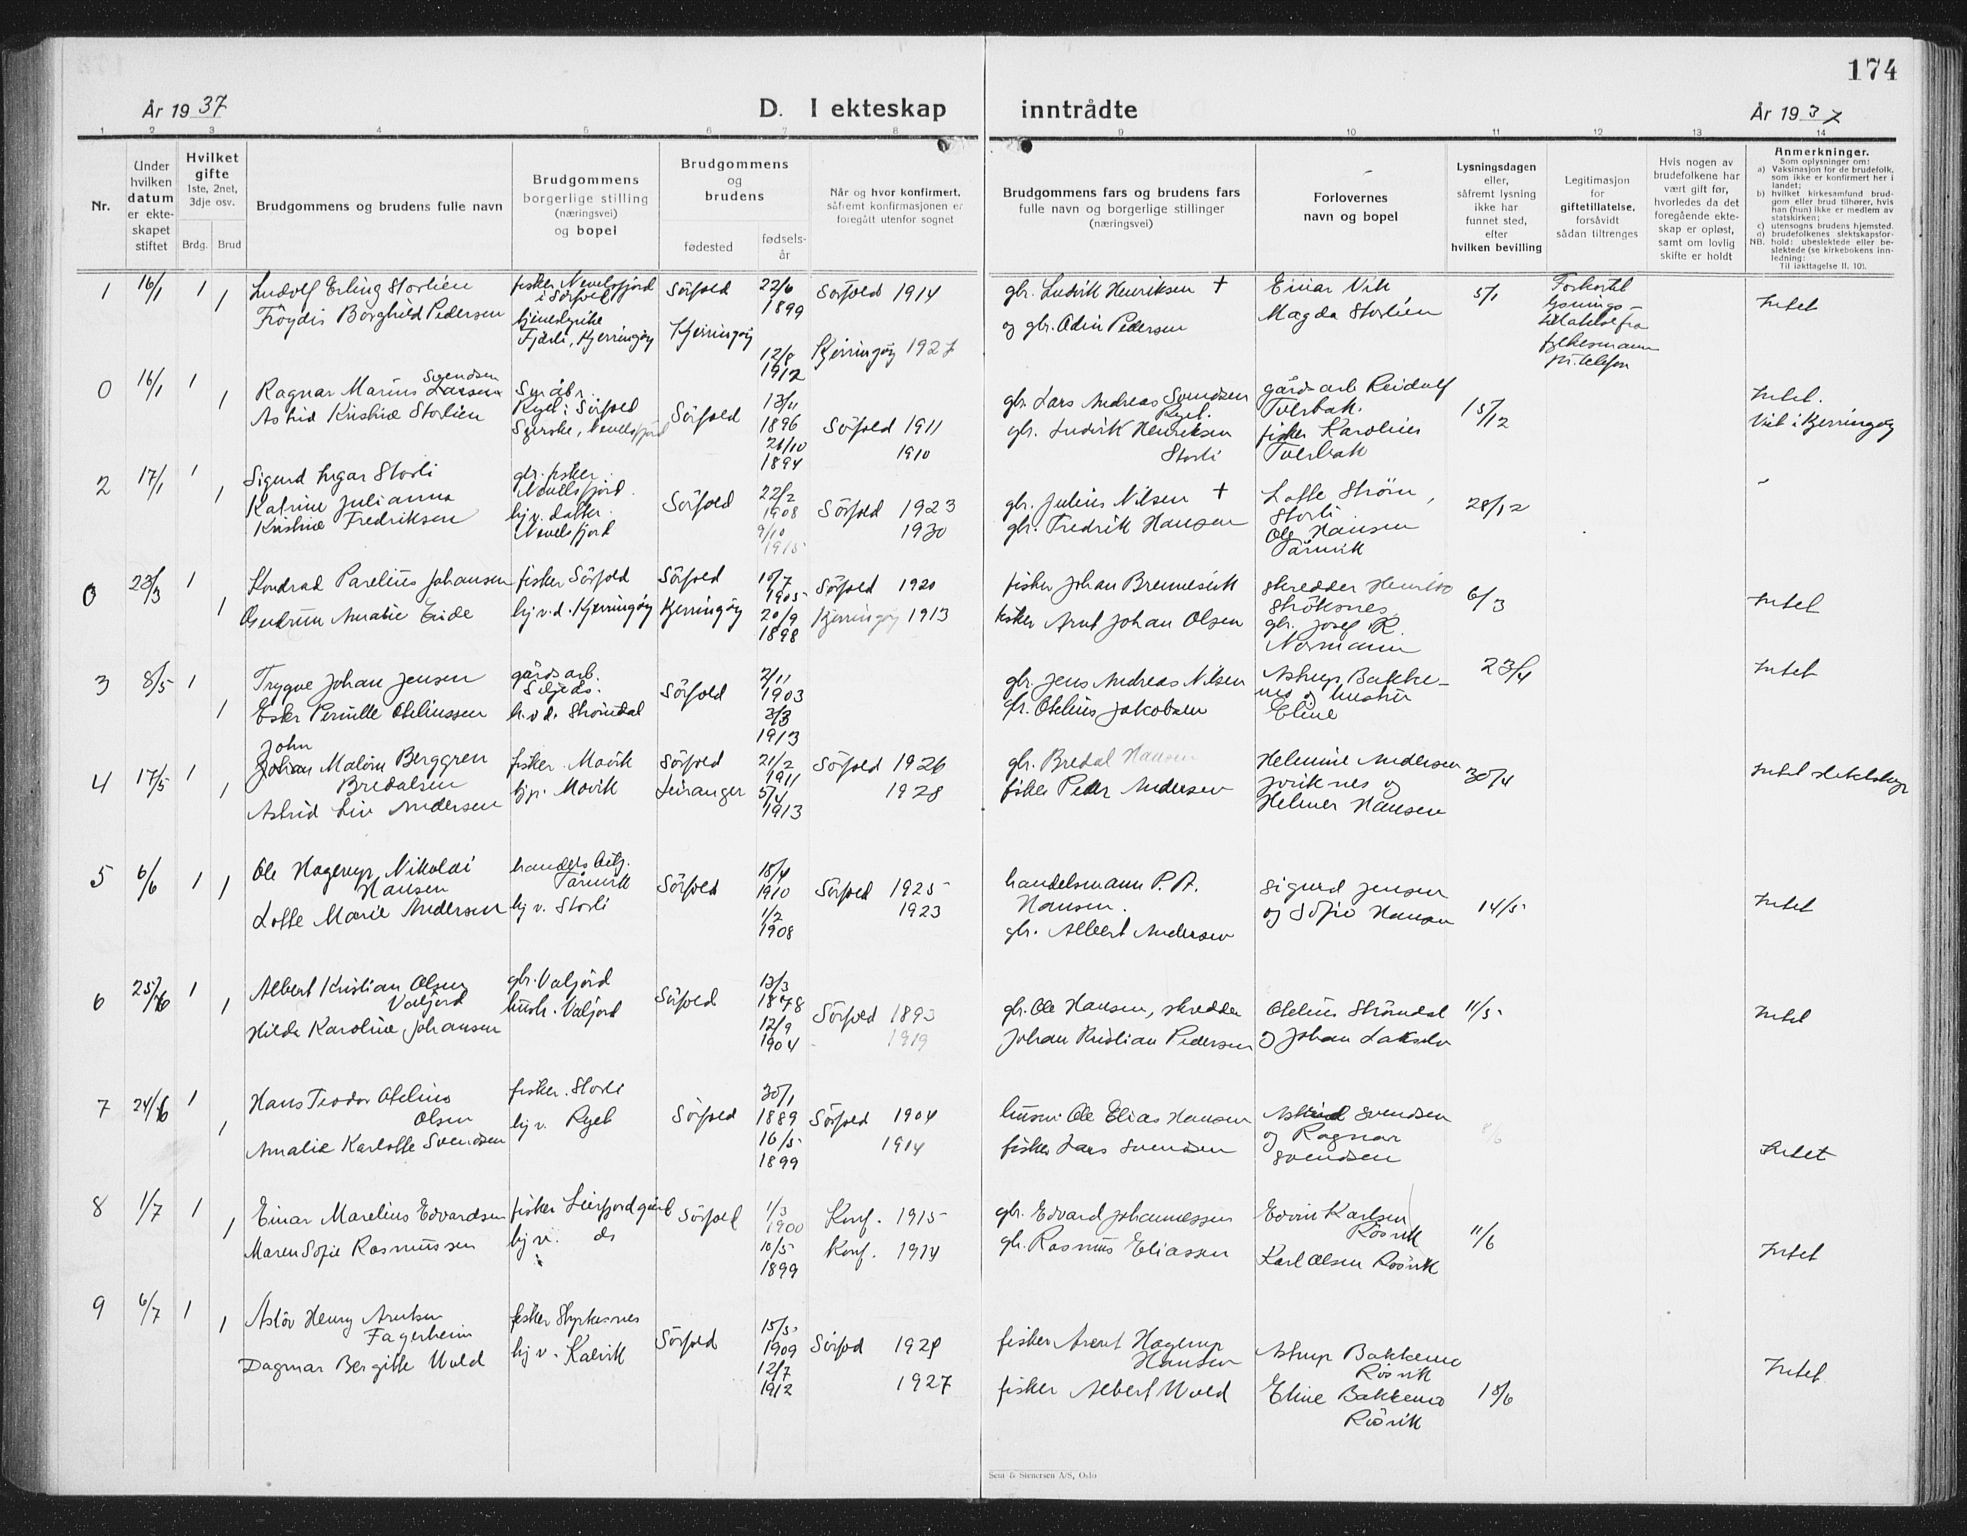 174
År 1937
D. I ekteskap inntrådte
År 1937
1 2 3 4 5 6 7 8 9 10 11 12 13 14
Nr.
Under
hvilken
datum
er ekte-
skapet
stiftet
Hvilket
gifte
1ste, 2net,
3dje osv.
Brdg. Brud
Brudgommens og brudens fulle navn
Brudgommens
borgerlige stilling
(næringsvei)
og bopel
Brudgommens
og
brudens
fødested
fødsels-
år
Når og hvor konfirmert,
såfremt konfirmasjonen er
foregått utenfor sognet
Brudgommens fars og brudens fars
fulle navn og borgerlige stillinger
(næringsvei)
Forlovernes
navn og bopel
Lysningsdagen
eller,
såfremt lysning
ikke har
funnet sted,
efter
hvilken bevilling
Legitimasjon
for
giftetillatelse,
forsåvidt
sådan tiltrenges
Hvis nogen av
brudefolkene har
vært gift før,
hvorledes da det
foregående ekte-
skap er opløst,
samt om lovlig
skifte er holdt
Anmerkninger.
Som oplysninger om:
a) Vaksinasjon for de brudefolk,
som ikke er konfirmert her i
landet;
b) hvilket kirkesamfund brud-
gom eller brud tilhører, hvis
han (hun) ikke er medlem av
statskirken;
c) utensogns brudens hjemsted.
d) brudefolkenes slektskapsfor-
NB. hold: ubeslektede eller be-
slektede (se kirkebokens inn-
ledning:
Til iakttagelse II. 10).
1 16/1 1 1
Ludolf Erling Storlien
Fröydis Borghild Pedersen
fisker Nevelsfjord
i Sörfold
Fjärli, Kjerringöy
Sörfold
Kjerringöy
22/6
1899
12/8
1912
Sörfold 1914
Kjerringöy 1927
gbr. Ludvik Henriksen +
og gbr. Odin Pedersen
Einar Vik
Magda Storlien
5/1
Forkortet
lysnings-
tillatelse fra
fylkesmann
pr. telefon
Intet
0 16/1 1 1
Svendsen
Ragnar Marius Larsen
Astrid Kristine Storlien
Ryel i Sörfold
Syerske, Nevelsfjord
Sörfold
13/11
1896
21/10
1894
Sörfold 1911
1910
gbr. Lars Andreas Svendsen
Ryel.
gbr. Ludvik Henriksen
Storli
gårdsarb Reidulf
Tverbak.
fisker Karolius
Tverbak
15/12
Intet.
Viet i Kjerringöy
2 17/1 1 1
Sigurd Ingar Storli
Katrine Julianna
Kristine Fredriksen
gbr. fisker
Nevelsfjord.
hj.v. datter.
Nevelsfjord
Sörfold
22/2
1908
9/10
1915
Sörfold 1923
1930
gbr. Julius Nilsen +
gbr. Fredrik Hansen
Lotte Ström,
Storli
Ole Hansen
Tårnvik
28/12
0 23/3 1 1
Kondrad Parelius Johansen
Gudrun Amalie Eide
fisker Sörfold
hj.v.d. Kjerringöy
Sörfold
Kjerringöy
10/7
1905
20/9
1898
Sörfold 1920
Kjerringöy 1913
fisker Johan Brennesvik
fisker Arnt Johan Olsen
skredder Henrik
Ströksnes
gbr. Josef R.
Normann
6/3
Intet
3 8/5 1 1
Trygve Johan Jensen
Ester Pernille Otelinssen
gårdsarb.
h.v.d. Strömdal
Sörfold
2/11
1903
3/3
1913
gbr. Jens Andreas Nilsen
gbr. Otelius Jakobsen
Astrup Bakke-
mo og hustru
Eline
23/4
Intet
4 17/5 1 1
John
Johan Malöm Berggren
Bredalsen
Astrid Liv Andersen
fisker. Movik
hjv. Movik
Sörfold
Leiranger
21/2
1911
5/4
1913
Sörfold 1926
1928
gbr. Bredal Hansen
fisker Peder Andersen
Helmine Andersen
Helmer Hansen
30/4
Intet
5 6/6 1 1
Ole Hagerup Nikolai
Hansen
Lotte Marie Andersen
Tårnvik
hj v. Storli
Sörfold
18/4
1910
1/2
1908
Sörfold 1925
1923
handelsmann P. A.
Hansen.
gbr. Albert Andersen
Sigurd Jensen
og Sofie Hansen
14/5
Intet
6 25/6 1 1
Albert Kristian Olsen
Valjord
Hilda Karoline Johansen
gbr. Valjord
hush. Valjord
Sörfold
13/3
1878
12/9
1904
Sörfold 1893
1919
gbr. Ole Hansen, skredder
Johan Kristian Pedersen
Otelius Strömdal
og Johan Lakselv
11/5
Intet
7 24/6 1 1
Hans Teodor Otelius
Olsen
Amalie Karlotte Svendsen
fisker. Storli
hj v. Ryel
Sörfold
30/1
1889
16/5
1899
Sörfold 1904
1914
husm. Ole Elias Hansen
fisker Lars Svendsen
Astrid Svendsen
og Ragnar
Svendsen
8/6
Intet
8 1/7 1 1
Einar Marelius Edvardsen
Maren Sofie Rasmussen
fisker Leirfjordgård
hj v. do
Sörfold
1/3
1900
10/5
1899
Konf. 1915
Konf. 1914
gbr. Edvard Johannessen
gbr. Rasmus Eliassen
Edvin Karlsen
Rösvik
Karl Olsen Rösvik
11/6
Intet
9 6/7 1 1
Aslöv Henry Arntsen
Fagerheim
Dagmar Bergitte Wold
fisker Styrkesnes
hj v. Kalvik
Sörfold
15/5
1909
12/7
1912
Sörfod 1924
1927
fisker Arent Hagerup
Hansen
fisker Albert Wold
Astrup Bakkemo
Rösvik
Eline Bakkemo
Rösvik
18/6
Intet.
Sem & Stenersen A/S, Oslo